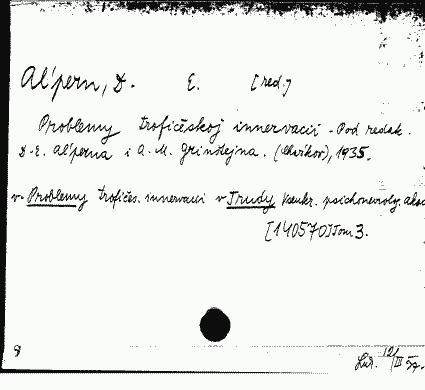 Al'pern, D. E. [red.]
Problemy trofičeskoj innervacii - Pod redak.
D. E. Al'perna i A. M. Grinštejna. (Char'kov), 1935.
v. Problemy trofičes. innervacii v Trudy psichonevrolog. akad
[140570] Tom 3.
8
12/III 57.